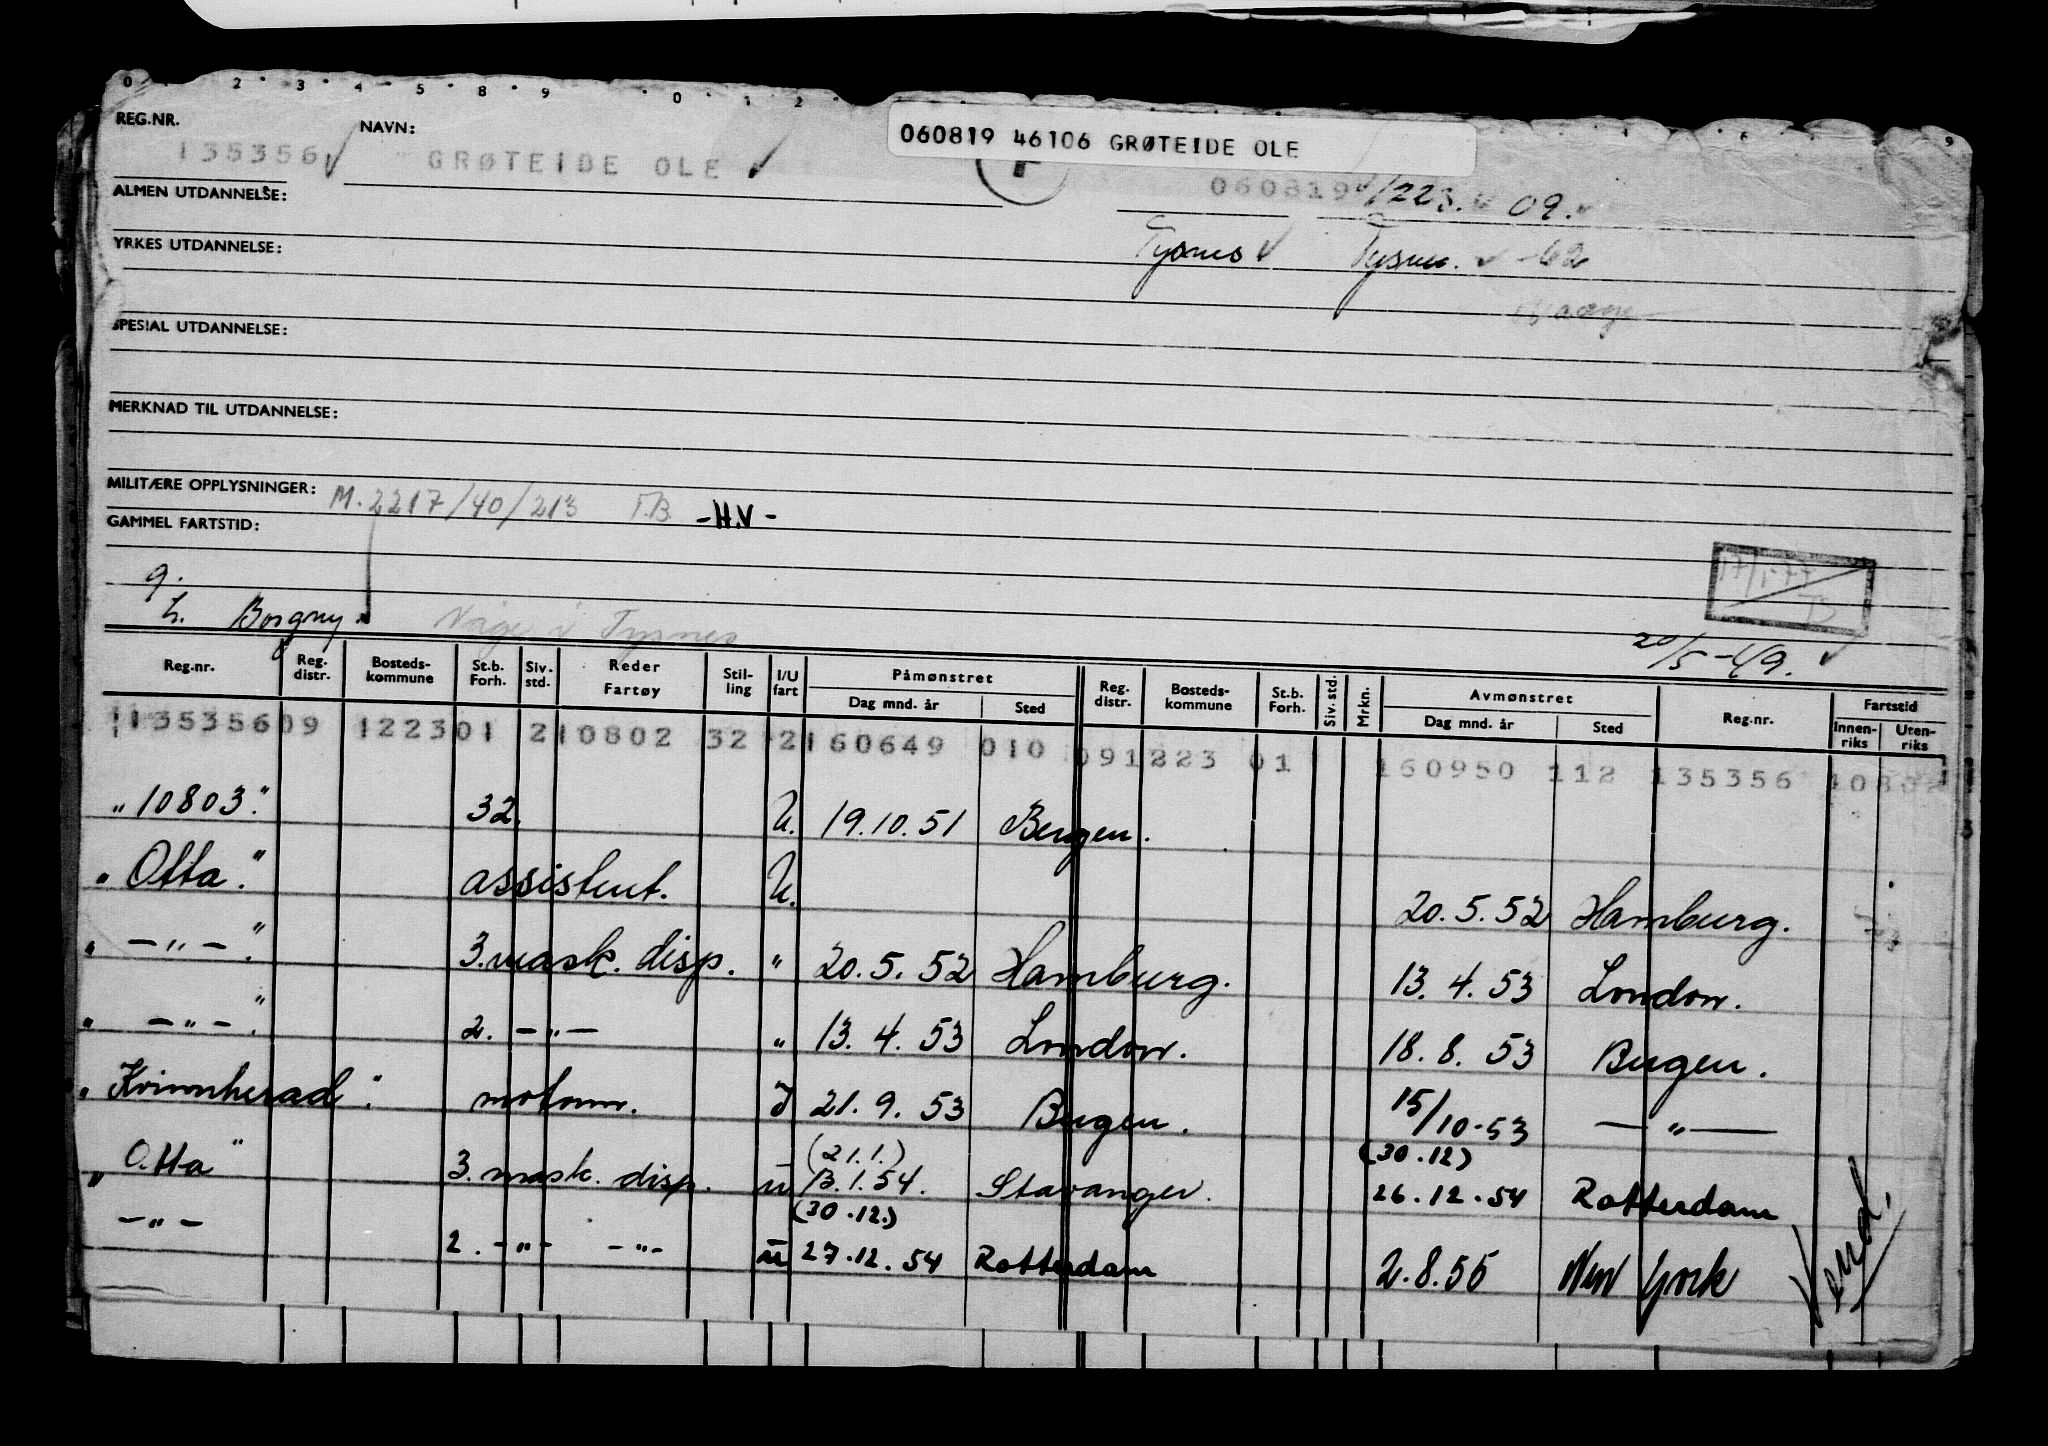 0 2 3 4 5 8 9 0 1 2
060819 46106 GRØTEIDE OLE
REG.NR. NAVN:
135356 GRØTEIDE OLE 060819 1223. 09.
ALMEN UTDANNELSE:
Tysnes Tysnes. -62
YRKES UTDANNELSE:
SPESIAL UTDANNELSE:
MERKNAD TIL UTDANNELSE:
MILITÆRE OPPLYSNINGER: M.2217/40/213 T.B. -H.V-
GAMMEL FARTSTID:
g.
h. Borgny. Våge i Tysnes
20/5-49.
Reg.nr. Reg. distr. Bosteds-kommune St.b. Forh. Siv. std. Reder Fartøy Stil-ling I/U fart Påmønstret Dag mnd. år Sted Reg. distr. Bosteds-kommune St.b. Forh. Siv. std. Mrkn. Avmønstret Dag mnd. år Sted Reg.nr. Fartstid Innen-riks Uten-riks
13535609 122301 210802 32 2160649 010 091223 01 160950 112 135356 10802
"10803." 32. U. 19.10.51 Bergen.
"Otta." assistent. U. 20.5.52 Hamburg.
" — " — ." 3.mask. disp. " 20.5.52 Hamburg. 13.4.53 London.
" — " — ." 2. — " — " 13.4.53 London. 18.8.53 Bergen.
"Kvinnherad". motorm. I 21.9.53 Bergen. 15/10-53 — " —
"Otta" 3. mask. disp. u (21.1.) 13.1.54. Stavanger. (30.12) 26.12.54 Rotterdam
— " — 2. - " - - " - u (30.12.) 27.12.54 Rotterdam 2.8.55 New York
Vend.